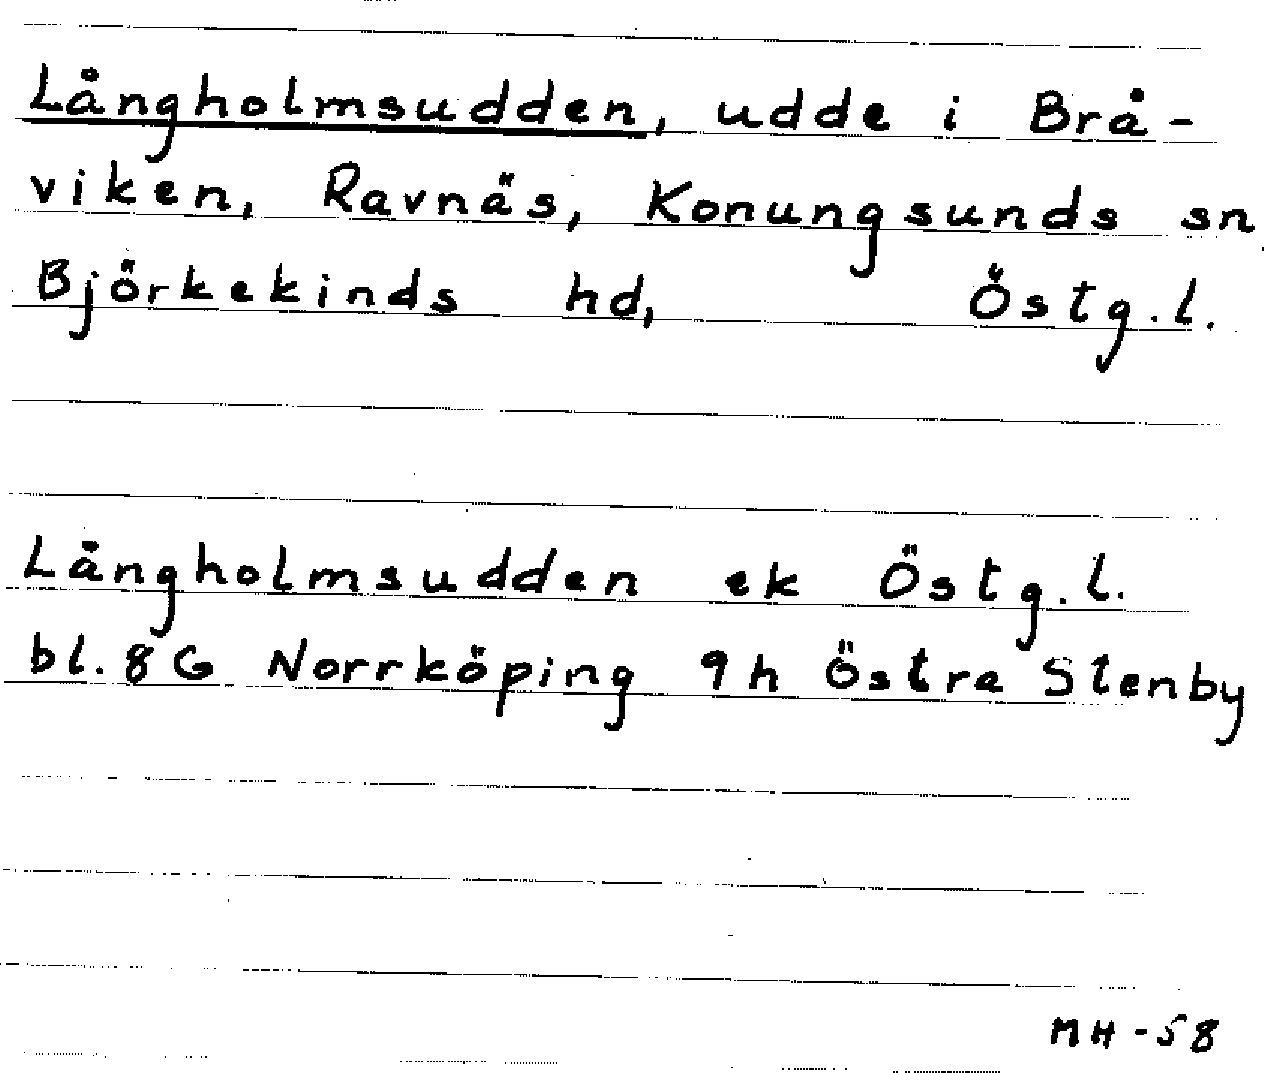 Långholmsudden, udde i Brå-
viken, Ravnäs, Konungsunds sn
Björkekinds hd, Östg.l.
Långholmsudden ek Östg.l.
bl. 8G Norrköping 9h Östra Stenby
MH-58